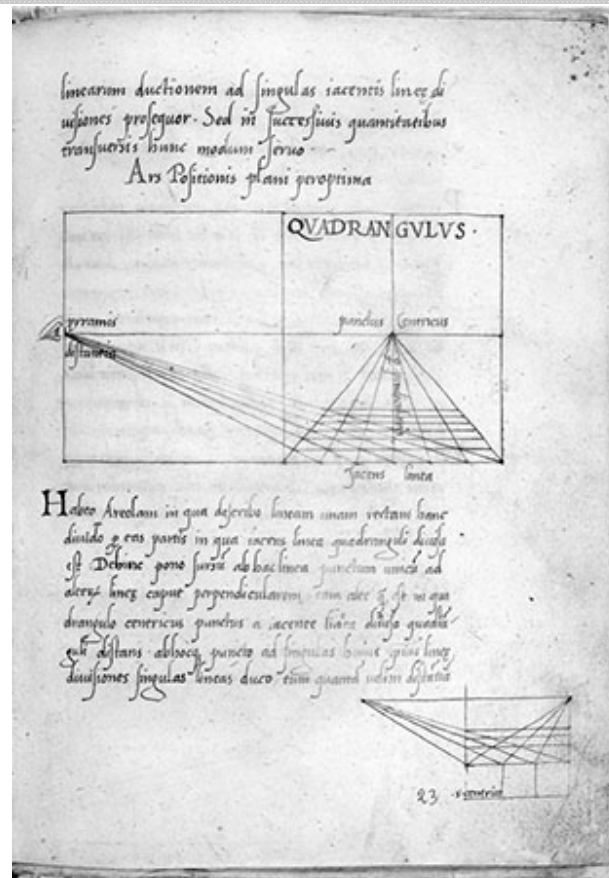 linearum ductionem ad singulas iacentis lineę di
uisiones prosequor. Sed in successiuis quantitatibus
transuersis hunc modum seruo
Ars Positionis plani peroptima
QVADRANGVLVS.
pyramis
punctus Centricus
distantia
Jacens linea
Habeo Areolam in qua describo lineam unam rectam hanc
diuido p eas partis in qua iacens linea quadranguli diuisa
est Dehinc pono sursu ab hac linea punctum unicu ad
alterę lineę caput perpendicularem tam alte q̃ est in qua
drangulo centricus punctus a iacente diuisa quadra
guli distans ab hocq puncto ad singulas huius lineę
diuisiones singulas lineas duco tum quantā uelim distantia
23
centrico